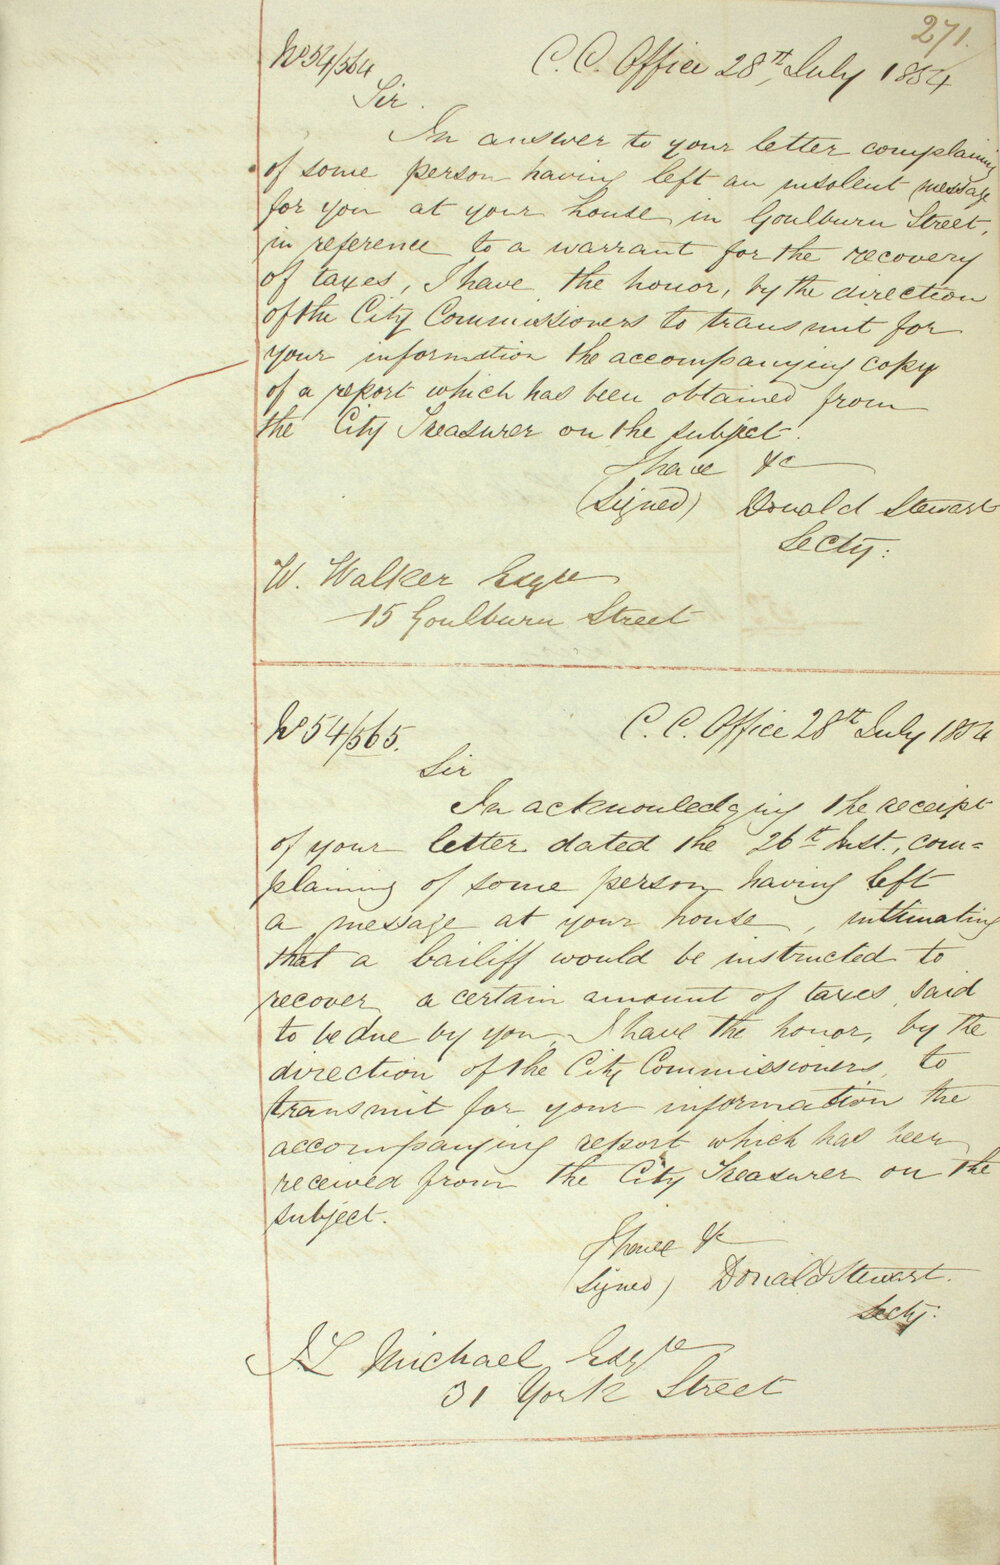 271.
No 54/564
C. C. Office 28th July 1854
Sir.
In answer to your letter complaining
of some person having left an insolent message
for you at your house in Goulburn Street,
in reference to a warrant for the recovery
of taxes, I have the honor, by the direction
of the City Commissioners to transmit for
your information the accompanying copy
of a report which has been obtained from
the City Treasurer on the subject.
I have &c
(Signed) Donald Stewart
Secty:
W. Walker Esqre
15 Goulburn Street
No 54/565.
C. C. Office 28th July 1854
Sir
In acknowledging the receipt
of your letter dated the 26th Inst., com=
plaining of some person having left
a message at your house, intimating
that a bailiff would be instructed to
recover a certain amount of taxes said
to be due by you, I have the honor, by the
direction of the City Commissioners, to
transmit for your information the
accompanying report which has been
received from the City Treasurer on the
subject.
I have &c
(Signed) Donald Stewart.
Secty:
J L Michael Esqre
31 York Street